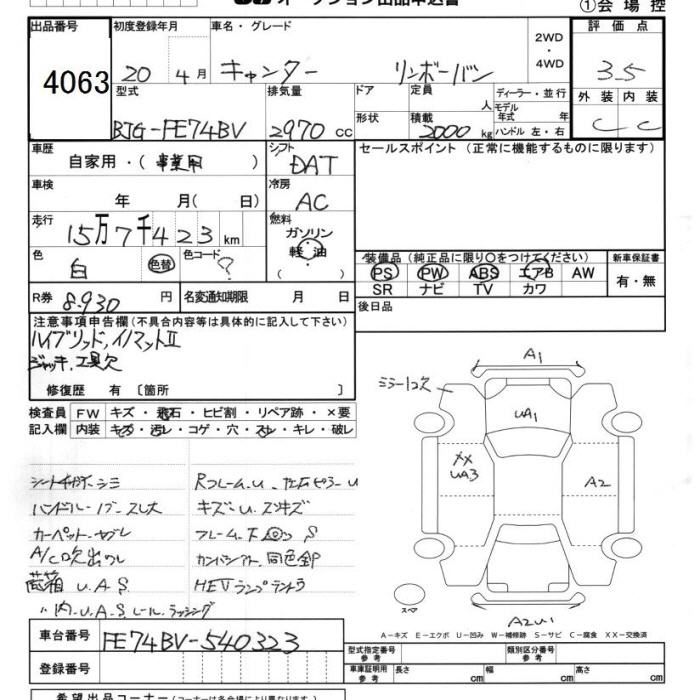 オークション出品申込書
①会場控
出品番号 初度登録年月 車名・グレード 2WD・4WD 評価点
4063 20 4月 キャンター リンボーバン 3.5
型式 排気量 ドア 定員 人 ディーラー・並行 外装 内装
モデル年式 年
BJG-FE74BV 2970 cc 形状 積載 2000 kg ハンドル 左・右 C C
車歴 シフト セールスポイント (正常に機能するものに限ります)
自家用・(事業用) DAT
車検 冷房
年 月( 日) AC
走行 燃料
15万7千423km ガソリン
軽・油
( )
色 色替 色コード 装備品 (純正品に限り○をつけてください) 新車保証書
白 ? PS PW ABS エアB AW 有・無
SR ナビ TV カワ
R券 8,930 円 名変通知期限 月 日 後日品
注意事項申告欄 (不具合内容等は具体的に記入して下さい)
ハイブリッド,イノマットⅡ
ジャッキ,工具欠
修復歴 有 〔箇所 〕
検査員 FW キズ・飛石・ヒビ割・リペア跡・×要
記入欄 内装 キズ・汚レ・コゲ・穴・スレ・キレ・破レ
A1
ミラー1コ欠
UA1
XX
UA3
A2
スペア
A2U1
シートチギレ・シミ Rフレームu. 左右ピラーu
ハンドル・ノブ・スレ大 キズ・u スリキズ
カーペット・ヤブレ フレーム下 S
A/C吹出ワレ 同色
荷箱 U.A.S HEVランプテントウ
〃内.U.A.S レール.ラッシング
A-キズ E-エクボ U-凹み W-補修跡 S-サビ C-腐食 XX-交換済
車台番号 FE74BV-540323
型式指定番号 参考 類別区分番号 参考
登録番号 車庫証明用 参考 長さ cm 幅 cm 高さ cm
希望出品コーナー (コーナーは各会場により異なります)